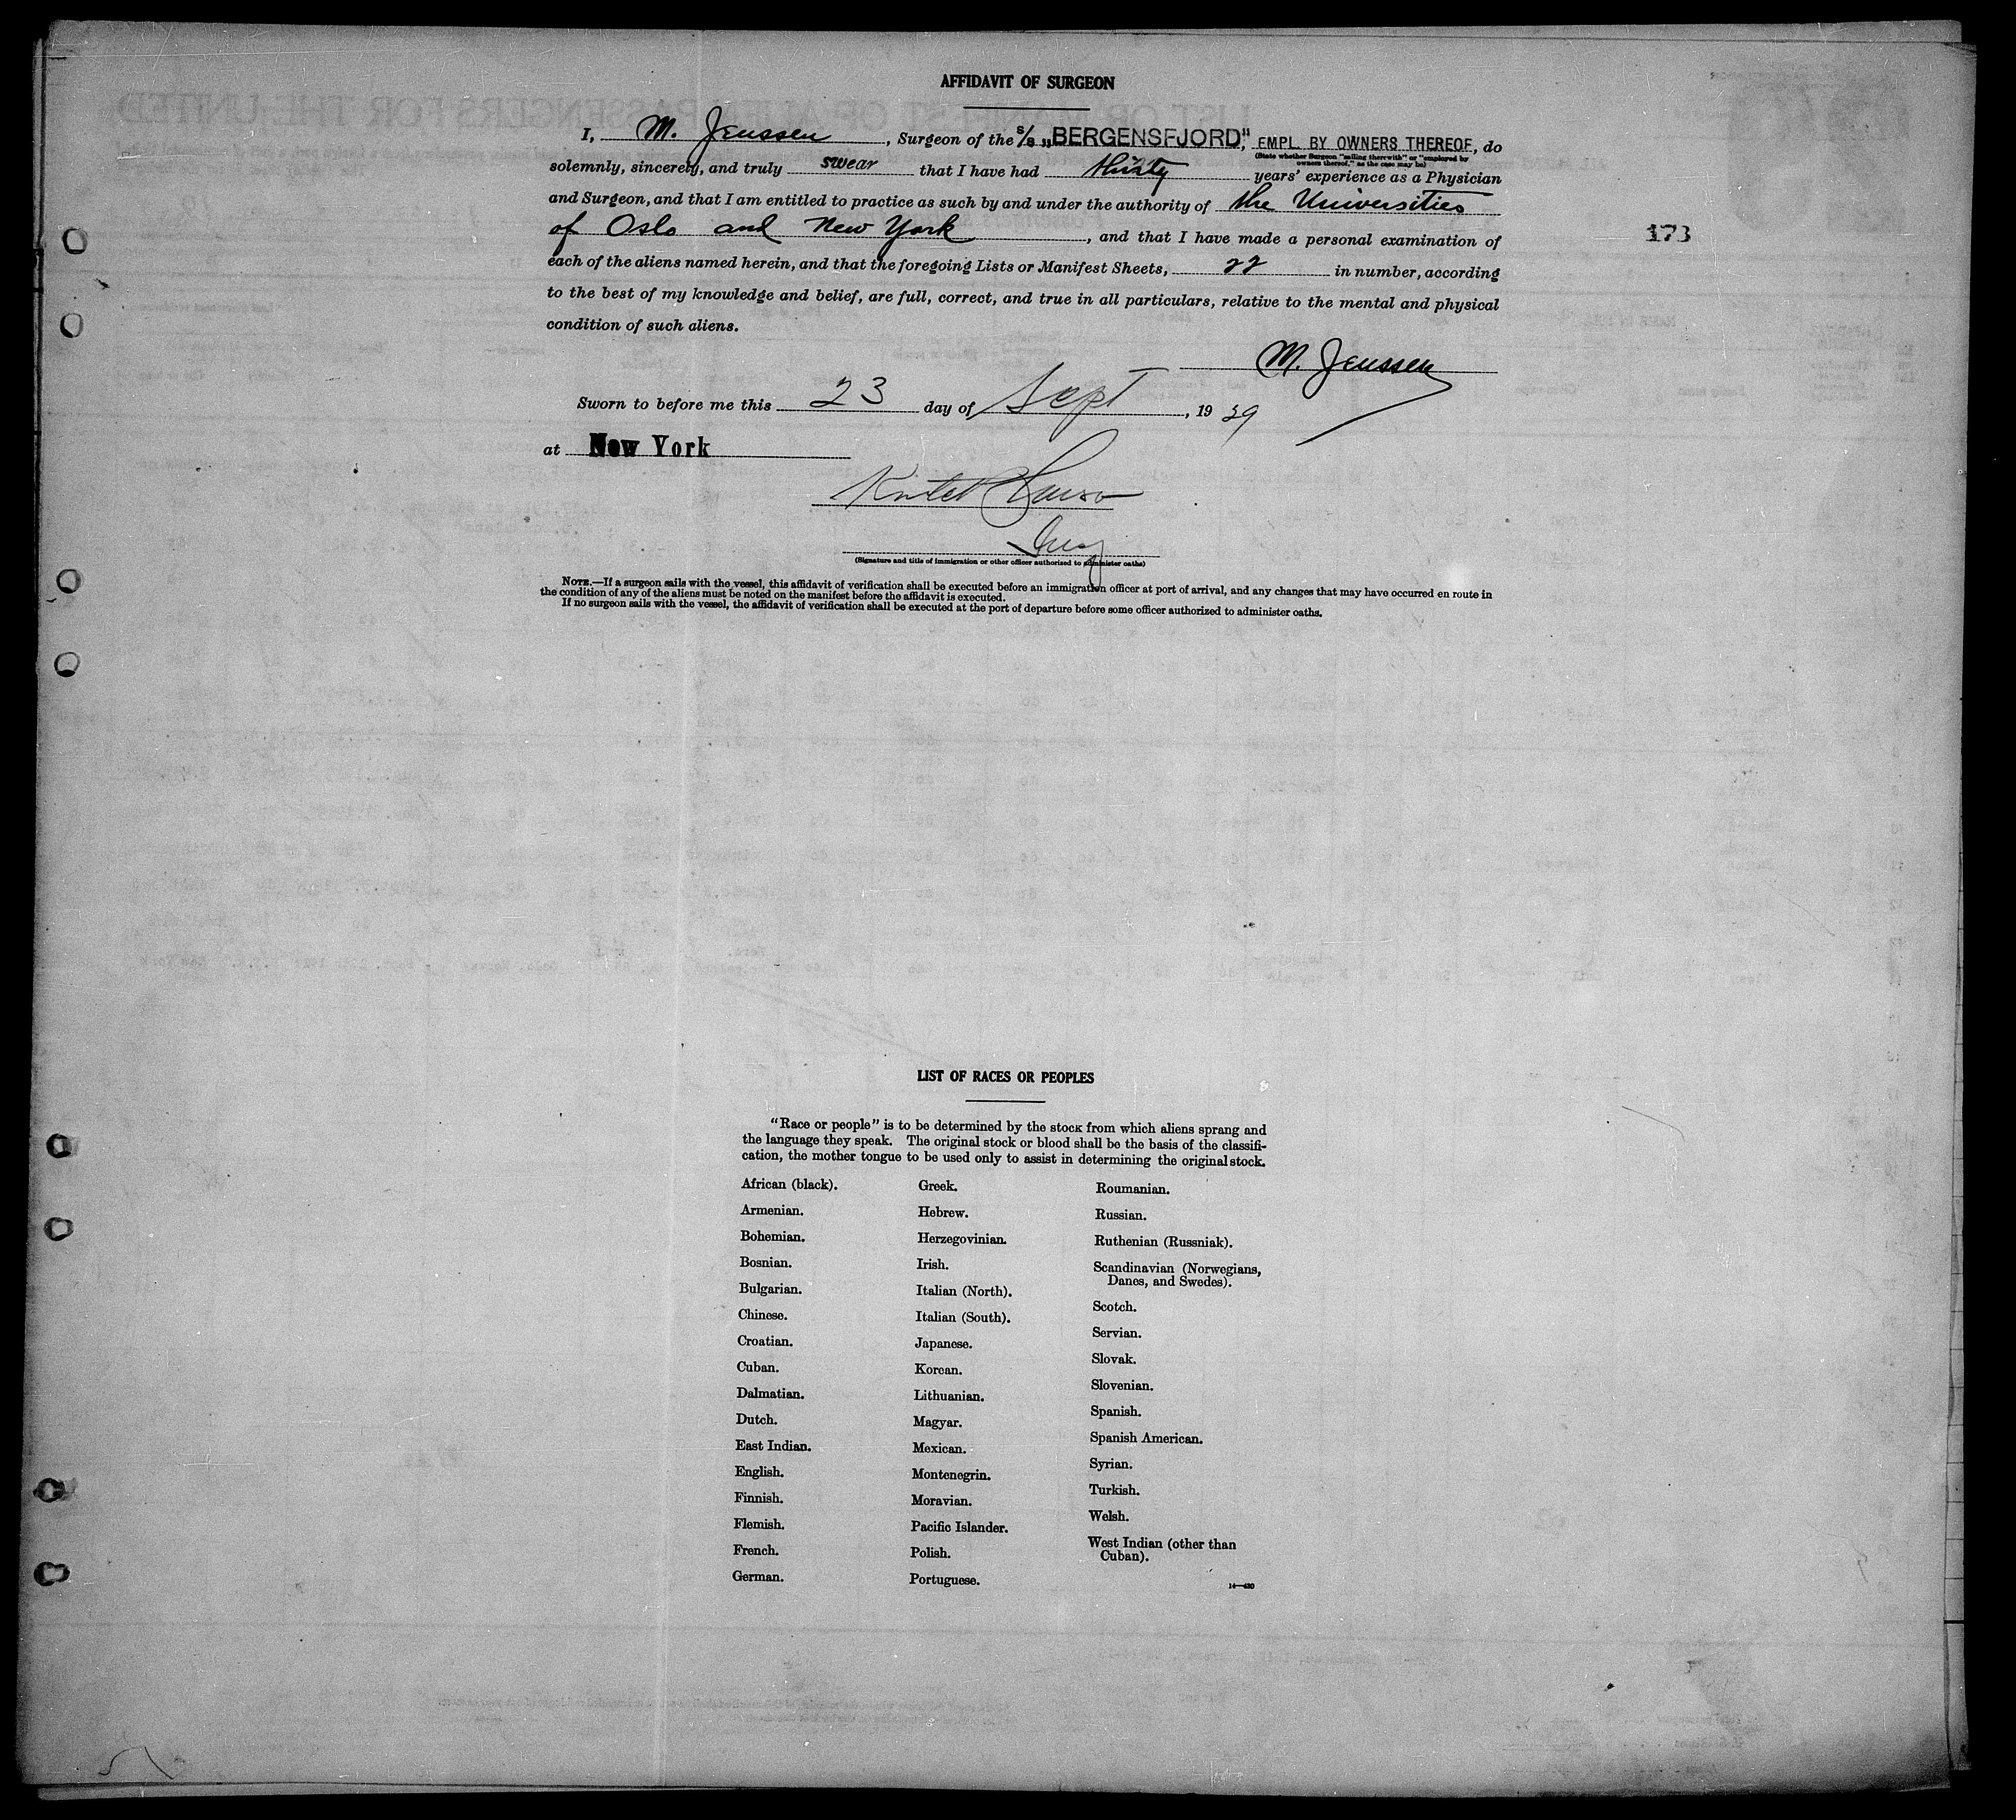 AFFIDAVIT OF SURGEON
I, M. Jenssen, Surgeon of the S/S „BERGENSFJORD", EMPL. BY OWNERS THEREOF, do
(State whether Surgeon "sailing therewith" or "employed by
owners thereof," as the case may be)
solemnly, sincerely, and truly swear that I have had thirty years' experience as a Physician
and Surgeon, and that I am entitled to practice as such by and under the authority of the Universities
of Oslo and New York, and that I have made a personal examination of
173
each of the aliens named herein, and that the foregoing Lists or Manifest Sheets, 22 in number, according
to the best of my knowledge and belief, are full, correct, and true in all particulars, relative to the mental and physical
condition of such aliens.
M. Jenssen
Sworn to before me this 23 day of Sept, 19 29
at New York
(Signature and title of immigration or other officer authorized to administer oaths)
NOTE.—If a surgeon sails with the vessel, this affidavit of verification shall be executed before an immigration officer at port of arrival, and any changes that may have occurred en route in
the condition of any of the aliens must be noted on the manifest before the affidavit is executed.
If no surgeon sails with the vessel, the affidavit of verification shall be executed at the port of departure before some officer authorized to administer oaths.
LIST OF RACES OR PEOPLES
"Race or people" is to be determined by the stock from which aliens sprang and
the language they speak. The original stock or blood shall be the basis of the classifi-
cation, the mother tongue to be used only to assist in determining the original stock.
African (black).
Armenian.
Bohemian.
Bosnian.
Bulgarian.
Chinese.
Croatian.
Cuban.
Dalmatian.
Dutch.
East Indian.
English.
Finnish.
Flemish.
French.
German.
Greek.
Hebrew.
Herzegovinian.
Irish.
Italian (North).
Italian (South).
Japanese.
Korean.
Lithuanian.
Magyar.
Mexican.
Montenegrin.
Moravian.
Pacific Islander.
Polish.
Portuguese.
Roumanian.
Russian.
Ruthenian (Russniak).
Scandinavian (Norwegians,
Danes, and Swedes).
Scotch.
Servian.
Slovak.
Slovenian.
Spanish.
Spanish American.
Syrian.
Turkish.
Welsh.
West Indian (other than
Cuban).
14—430